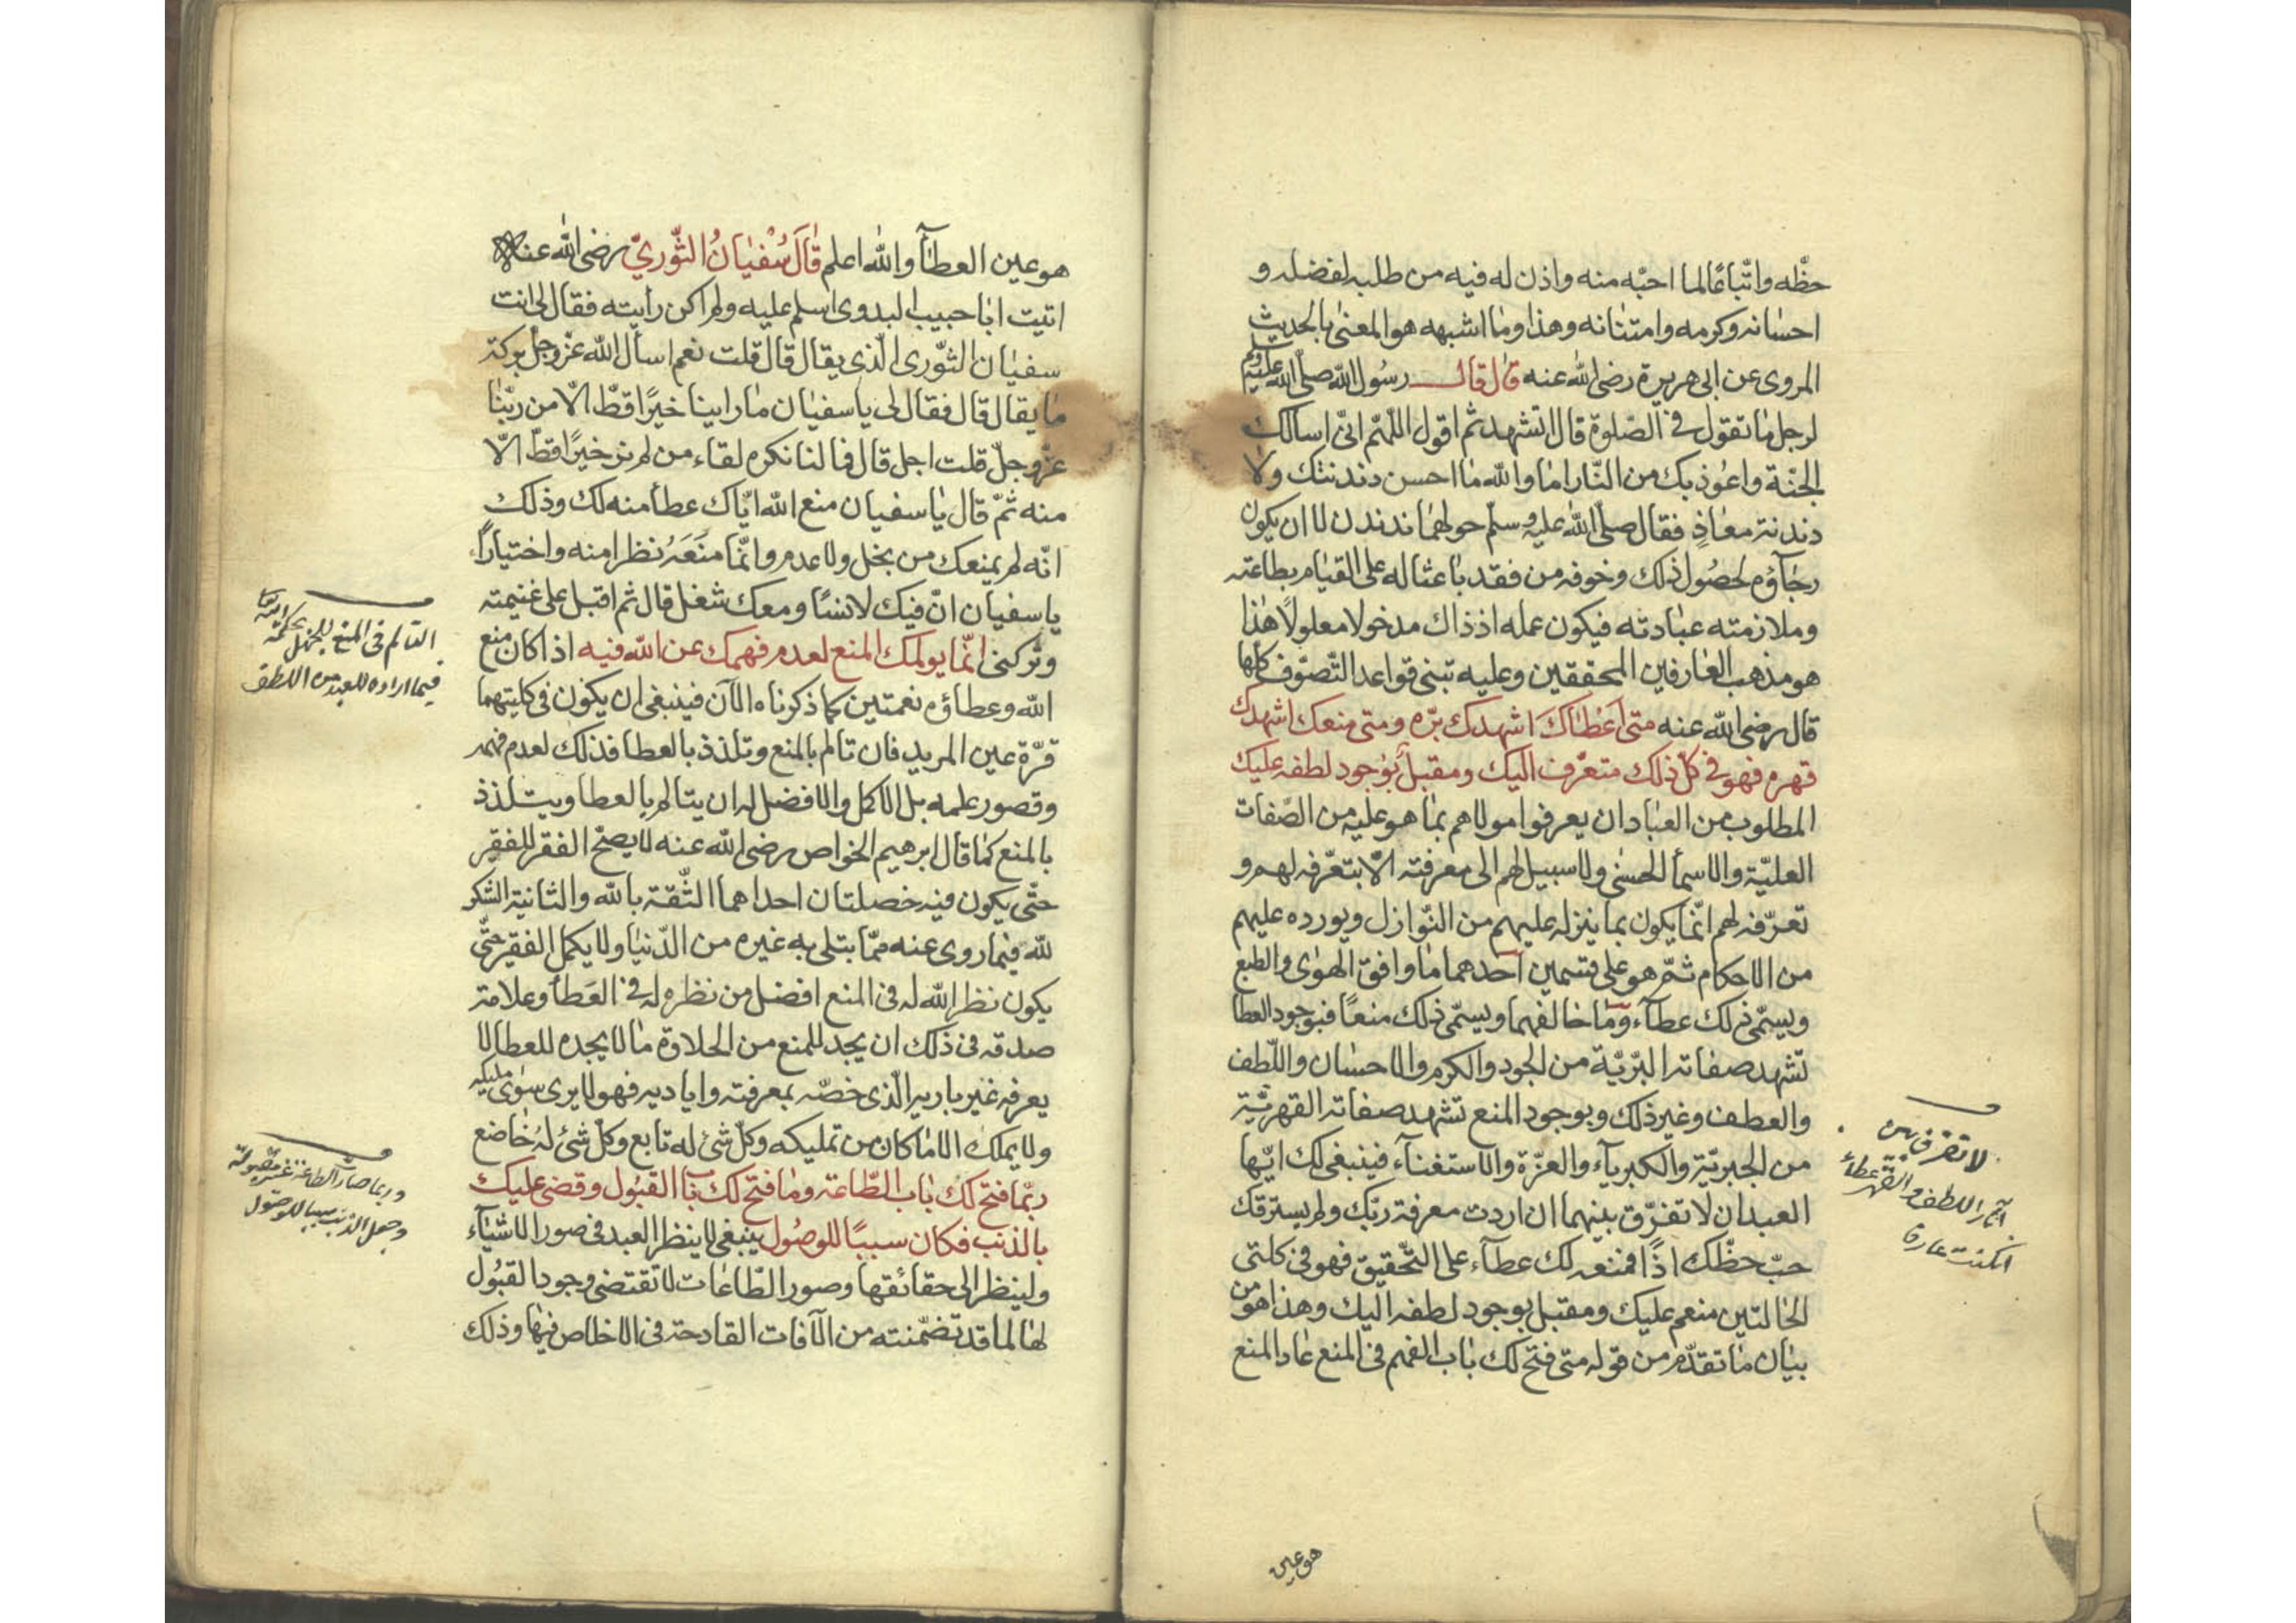 حظّه واتّباعًا لما احبّه منه واذن له فيه من طلبه لفضله و
احسانه وكرمه وامتنانه وهذا وما اشبهه هو المعنىٰ بالحديث
المروى عن ابى هريرة رضى الله عنه قال قال رسُول الله صلّى الله عليه وسلم
لرجل ما تقول فى الصّلوة قال اتشهد ثم اقول اللّهمّ انّى اسالك
الجنّة واعُوذ بك من النّار اما والله ما احسن دندنتك ولا
دندنة معاذٍ فقال صلّى الله عليه وسلّم حولهما ندندن لا ان يكون
رجاؤه لحصُول ذلك وخوفه من فقد باعثا له على القيام بطاعته
وملازمته عبادته فيكون عمله اذ ذاك مدخولا معلولاً هٰذا
هو مذهب العارفين المحققين وعليه تبنى قواعد التّصوّف كلها
قال رضى الله عنه متى اَعْطَاكَ اشهدك برّه ومتى منعك اشهدك
قهره فهو فى كلّ ذلك متعرّف اليك ومقبل بوُجود لطفه عليك
المطلوب من العباد ان يعرفوا مولاهم بما هو عليه من الصّفات
العليّة والاسمأ الحسنىٰ ولا سبيل لهم الى معرفته الّا بتعرّفه لهم و
تعرّفه لهم انّما يكون بما ينزله عليهم من النّوازل ويورده عليهم
من الاحكام ثمّ هو على قسمين احدهما ما وافق الهوٰى والطبع
ويسمّى ذلك عطآء وما خالفهما ويسمّى ذلك منعًا فبوجود العطا
تشهد صفاته البرّيّة من الجود والكرم والاحسان واللّطف
والعطف وغير ذلك وبوجود المنع تشهد صفاته القهريّة
من الجبريّة والكبرياء والعزّة والاستغناء فينبغى لك ايّها
العبد ان لا تفرّق بينهما ان اردت معرفة ربّك ولم يسترقك
حبّ حظّك اذًا فمنعه لك عطآء على التّحقيق فهو فى كلتى
الحالتين منعم عليك ومقبل بوجود لطفه اليك وهذا هو من
بيان ما تقدّم من قوله متى فتح لك باب الفهم فى المنع عاد المنع
لا تفرق بين
آثار اللطف والقهر عطاء
ان كنت عارفا
هو عين
هو عين العطآء والله اعلم قَالَ سُفْيَانُ الثّوريّ رضى الله عنه
اتيت ابا حبيب البدوى اسلم عليه ولم اكن رأيته فقال لى انت
سفيان الثّورى الّذى يقال قال قلت نعم اسأل الله عزّ وجلّ بركة
ما يقال قال فقال لى يا سفيان ما راينا خيرًا قطّ الّا من ربّنا
عزّ وجلّ قلت اجل قال فما لنا نكره لقاء من لم نر خيرًا قطّ الّا
منه ثمّ قال يا سفيان منع الله ايّاك عطأ منه لك وذلك
انّه لم يمنعك من بخل ولا عدم وانّما منَعَهُ نظرا منه واختيارًا
يا سفيان انّ فيك لانسًا ومعك شغل قال ثم اقبل على غنيمته
وتركنى انّما يولمك المنع لعدم فهمك عن الله فيه اذا كان منع
الله وعطاؤه نعمتين كما ذكرناه الآن فينبغى ان يكون فى كليتهما
قرّة عين المريد فان تالم بالمنع وتلذذ بالعطا فذلك لعدم فهمه
وقصور علمه بل الاكمل والافضل له ان يتالم بالعطا ويتلذذ
بالمنع كما قال ابرهيم الخواص رضى الله عنه لا يصحّ الفقر للفقير
حتّى يكون فيه خصلتان احداهما الثّقة بالله والثانية الشكر
لله فيما روى عنه ممّا ابتلى به غيره من الدّنيا ولا يكمل الفقير حتّى
يكون نظر الله له فى المنع افضل من نظره له فى العَطأ وعلامة
صدقه فى ذلك ان يجد للمنع من الحلاوة ما لا يجده للعطا لا
يعرفه غير باريه الّذى خصّه بمعرفته واياديه فهو لا يرى سوى مليكه
ولا يملك الا ما كان من تمليكه وكلّ شئ له تابع وكلّ شئ لهُ خاضع
ربّما فتح لك باب الطّاعة وما فتح لك باب القبُول وقضى عليك
بالذنب فكان سببًا للوصُول ينبغى لا ينظر العبد فى صور الاشيآء
ولينظر الى حقائقها وصور الطّاعات لا تقتضى وجود القبُول
لها لما قد تضمّنته من الآفات القادحة فى الاخلاص فيها وذلك
التالم فى المنع للجهل بحكمة الله
فيما اراده للعبد من اللطف
وربما صارت الطاعة غير مقبولة
وجعل الذنب سببا للوصول